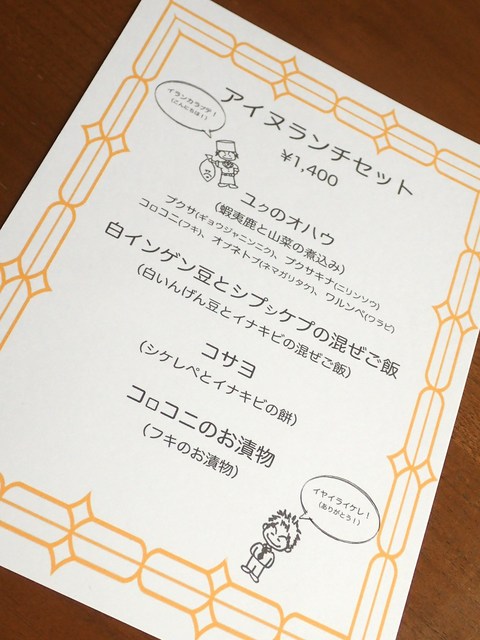 イランカラㇷ゚テ！
(こんにちは！)
アイヌランチセット
¥1,400
ユㇰのオハウ
(蝦夷鹿と山菜の煮込み)
プクサ(ギョウジャニンニク)、プクサキナ(ニリンソウ)
コㇿコニ(フキ)、オプネトプ(ネマガリタケ)、ワルンベ(ワラビ)
白インゲン豆とシプㇱケプの混ぜご飯
(白いんげん豆とイナキビの混ぜご飯)
コサヨ
(シケレペとイナキビの餅)
コㇿコニのお漬物
(フキのお漬物)
イヤイライケレ！
(ありがとう！)